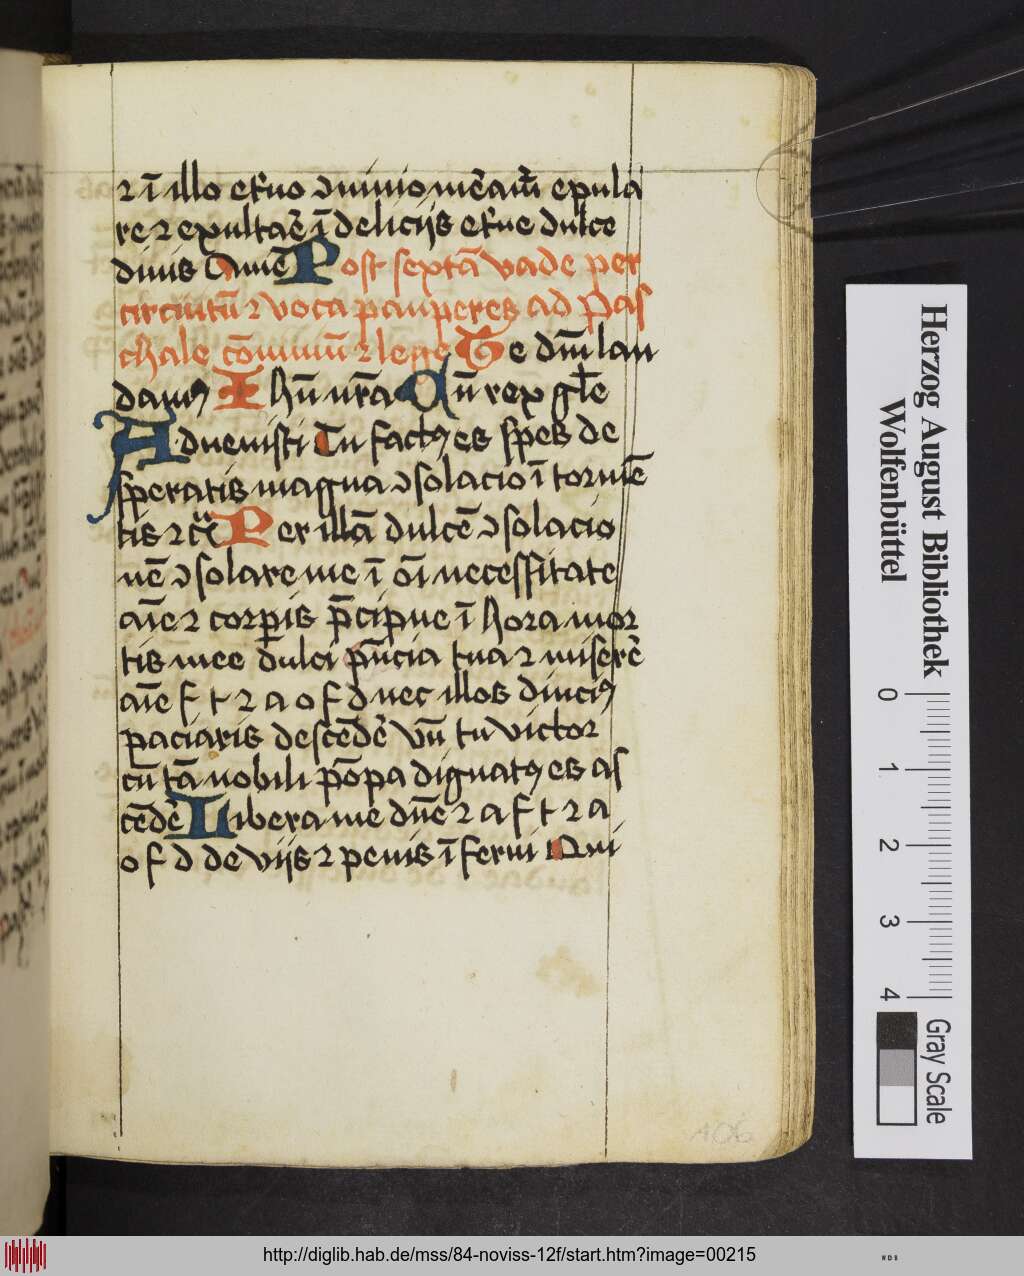 ⁊ ī illo et̉no ↄuiuio mēam̄ epula
re ⁊ exultaē ī delicijs et̉ne dulce
dinis Amē Post sextā vade per
circuitū ⁊ voca pauperes ad Pas
chale ↄ̄uiuiū ⁊ lege Te dm̄ lau
damꝰ Ihū nr̄a Cū rex gl̄e
Aduenisti Tu factꝰ es spes de
speratis magna ↄsolacio ī tormē
tis ⁊ c̄ Per illā dulcē ↄsolacio
nē ↄsolare me ī oī necessitate
aīe ⁊ corꝑis p̄cipue ī hora mor
tis mee dulci pn̄cia tua ⁊ miserē
aīe f t ⁊ a o f d nec illos diucꝰ
paciaris descēdē vn̄ tu victor
cū tā nobili pōpa dignatꝰ es as
cēdē Libera me dn̄e ⁊ a f t ⁊ a
o f d de vijs ⁊ penis īferni Qui
Herzog August Bibliothek
Wolfenbüttel
0 1 2 3 4
Gray Scale
http://diglib.hab.de/mss/84-noviss-12f/start.htm?image=00215
WDB